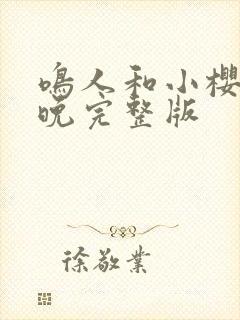 鳴人和小櫻
晚完整版
徐敬業